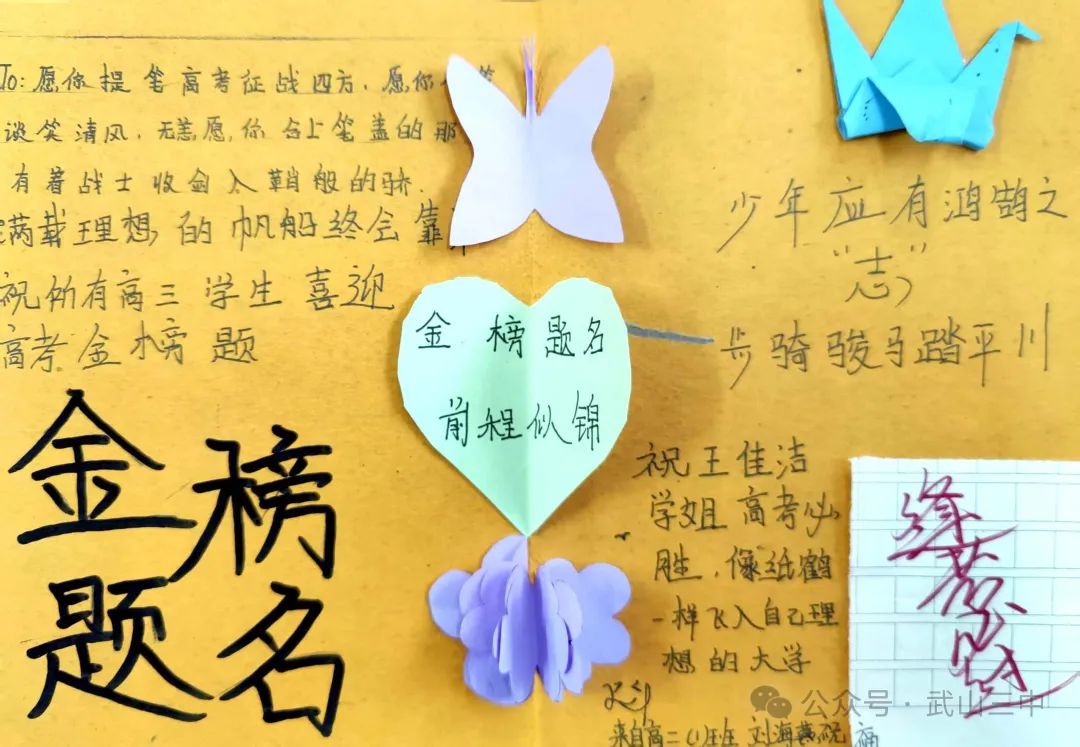 To: 愿你提笔高考征战四方，愿你
谈笑清风，无恙愿你合上笔盖的那
有着战士收剑入鞘般的骄
满载理想的帆船终会靠
祝所有高三学生喜迎
高考金榜题
金榜
题名
金榜题名
前程似锦
少年应有鸿鹄之
“志”
步骑骏马踏平川
祝王佳洁
学姐高考必
胜，像纸鹤
一样飞入自己理
想的大学
来自高二(1)班 刘海燕祝福
公众号 · 武山三中